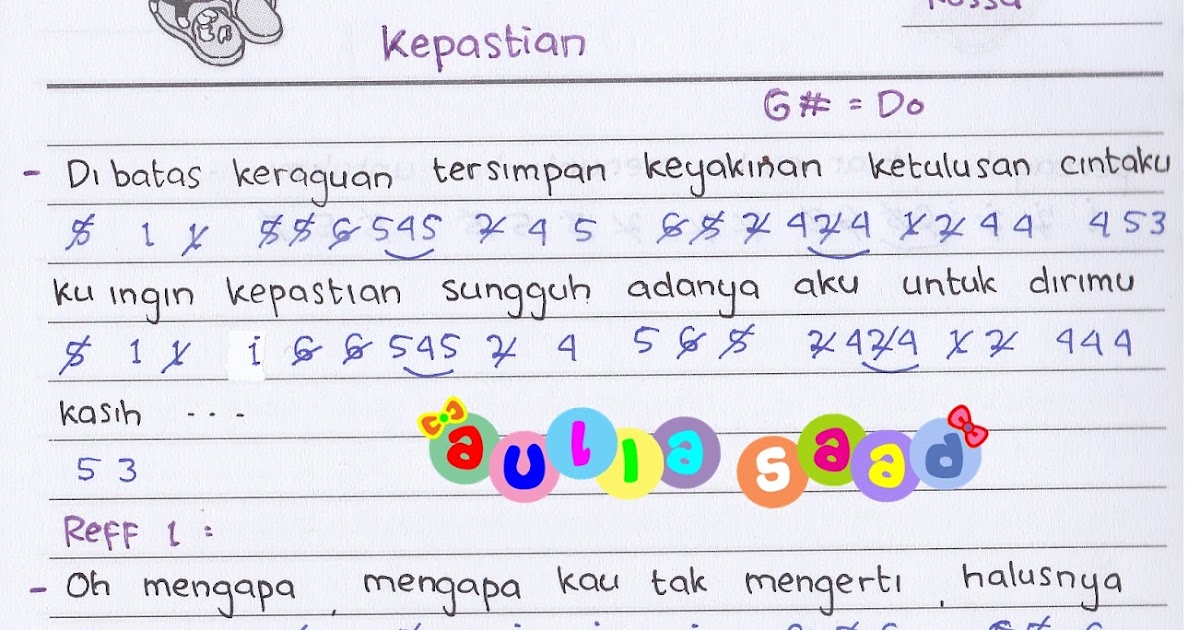 Rossa
Kepastian
G# = Do
- Di batas keraguan tersimpan keyakinan ketulusan cintaku
5̸ 1 1̸ 5̸ 5̸ 6̸ 545 2̸ 4 5 6̸ 5̸ 2̸ 4 2̸ 4 1̸ 2̸ 4 4 4 5 3
ku ingin kepastian sungguh adanya aku untuk dirimu
5̸ 1 1̸ i 6̸ 6̸ 545 2̸ 4 5 6̸ 5̸ 2̸ 4 2̸ 4 1̸ 2̸ 4 4 4
kasih ...
5 3
aulia saad
Reff 1 :
- Oh mengapa, mengapa kau tak mengerti, halusnya